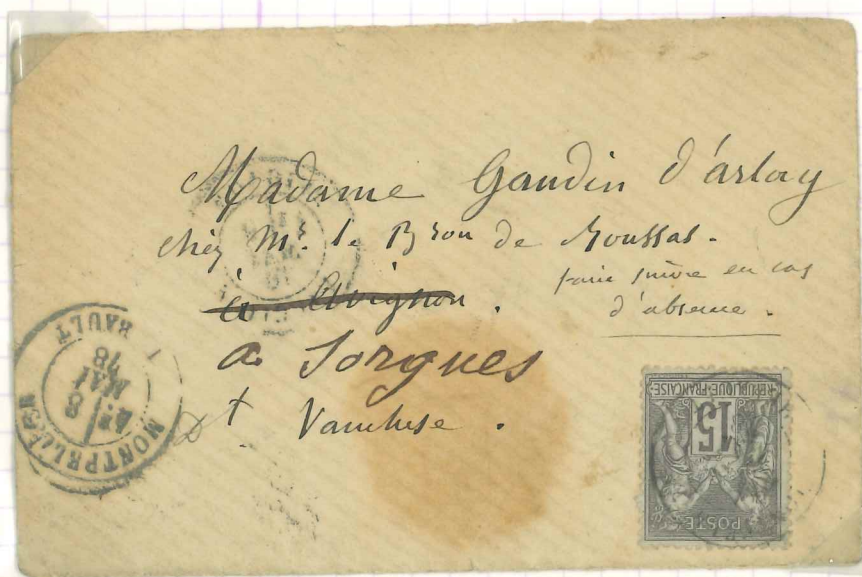 Madame Gaudin d'arlay
chez Mr. le Bron de Roussas.
faire suivre en cas
d'absence.
à Avignon.
a Sorgues
Dt Vaucluse.
MONTPELLIER
8
MAI
78
HAULT
REPUBLIQUE FRANÇAISE
15
POSTE